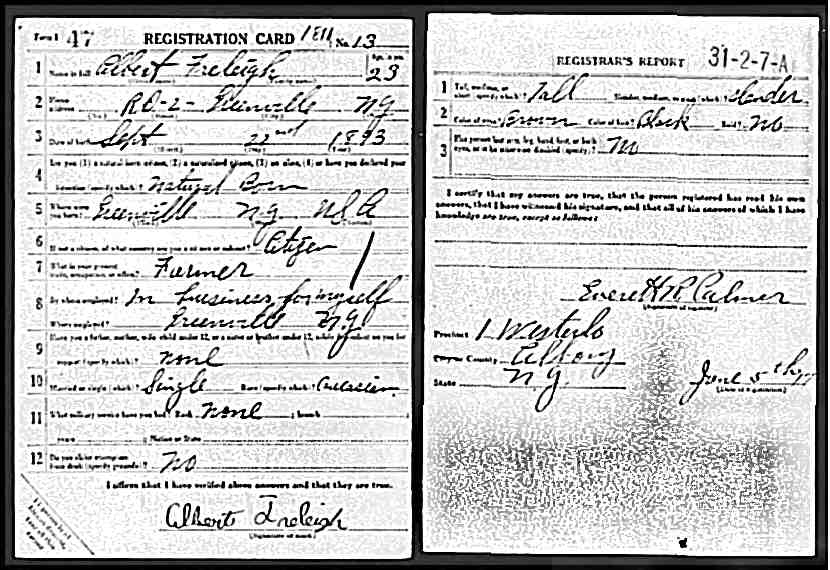 Form 1 47 REGISTRATION CARD No. 13
1 Name in full Albert Freleigh Age, in yrs. 23
2 Home address RD-2- Greenville N.Y.
3 Date of birth Sept 22nd 1893
4 Are you (1) a natural born citizen, (2) a naturalized citizen, (3) an alien, (4) or have you declared your
intention (specify which)? Natural Born
5 Where were you born? Greenville N.Y. U.S.A
6 If not a citizen, of what country are you a citizen or subject? Citizen
7 What is your present trade, occupation, or office? Farmer
8 By whom employed? In business for myself
Where employed? Greenville N.Y.
9 Have you a father, mother, wife, child under 12, or a sister or brother under 12, solely dependent on you for
support (specify which)? none
10 Married or single (which)? Single Race (specify which)? Caucasian
11 What military service have you had? Rank none ; branch
years ; Nation or State
12 Do you claim exemption from draft (specify grounds)? No
I affirm that I have verified above answers and that they are true.
Albert Freleigh
(Signature or mark)
REGISTRAR'S REPORT 31-2-7-A
1 Tall, medium, or short (specify which)? Tall Slender, medium, or stout (which)? Slender
2 Color of eyes? Brown Color of hair? Black Bald? No
3 Has person lost arm, leg, hand, foot, or both eyes, or is he otherwise disabled (specify)? No
I certify that my answers are true, that the person registered has read his own
answers, that I have witnessed his signature, and that all of his answers of which I have
knowledge are true, except as follows:
Everett R Palmer
(Signature of registrar)
Precinct 1 Westerlo
County Albany
State N.Y. June 5th 17
(Date of registration)